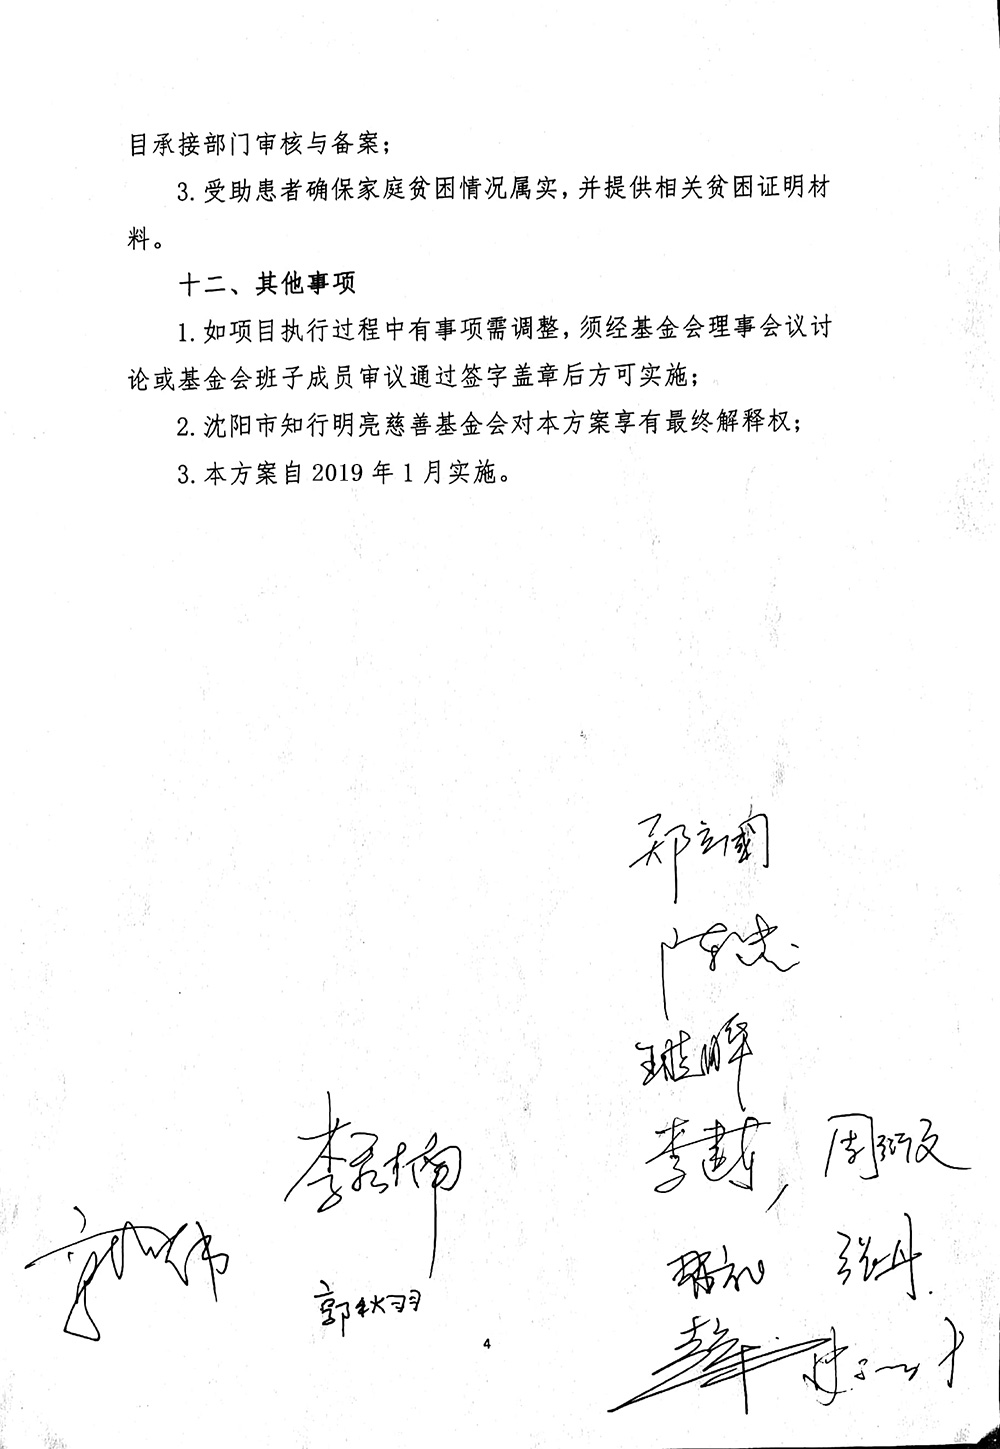 目承接部门审核与备案；
3.受助患者确保家庭贫困情况属实，并提供相关贫困证明材
料。
十二、其他事项
1.如项目执行过程中有事项需调整，须经基金会理事会议讨
论或基金会班子成员审议通过签字盖章后方可实施；
2.沈阳市知行明亮慈善基金会对本方案享有最终解释权；
3.本方案自 2019 年 1 月实施。
郭秋羽
张丹
4